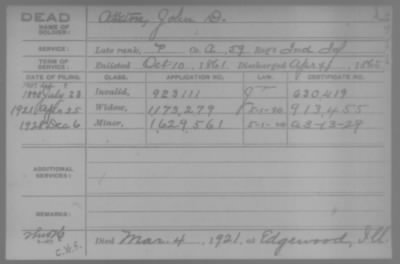 DEAD
NAME OF SOLDIER: John D.
SERVICE: Late rank, P Co. A, 59 Reg't Ind Inf
TERM OF SERVICE: Enlisted Oct 10, 1861. Discharged Apr 4, 1865
DATE OF FILING. CLASS. APPLICATION NO. LAW. CERTIFICATE NO.
1890 July 23 Invalid, 923111 630,419
1921 Apr 25 Widow, 1173,279 5-1-20 913,455
1928 Dec 6 Minor, 1629,561 5-1-20 A3-13-29
ADDITIONAL SERVICES:
REMARKS:
Died Mar. 4, 1921, at Edgewood, Ill.